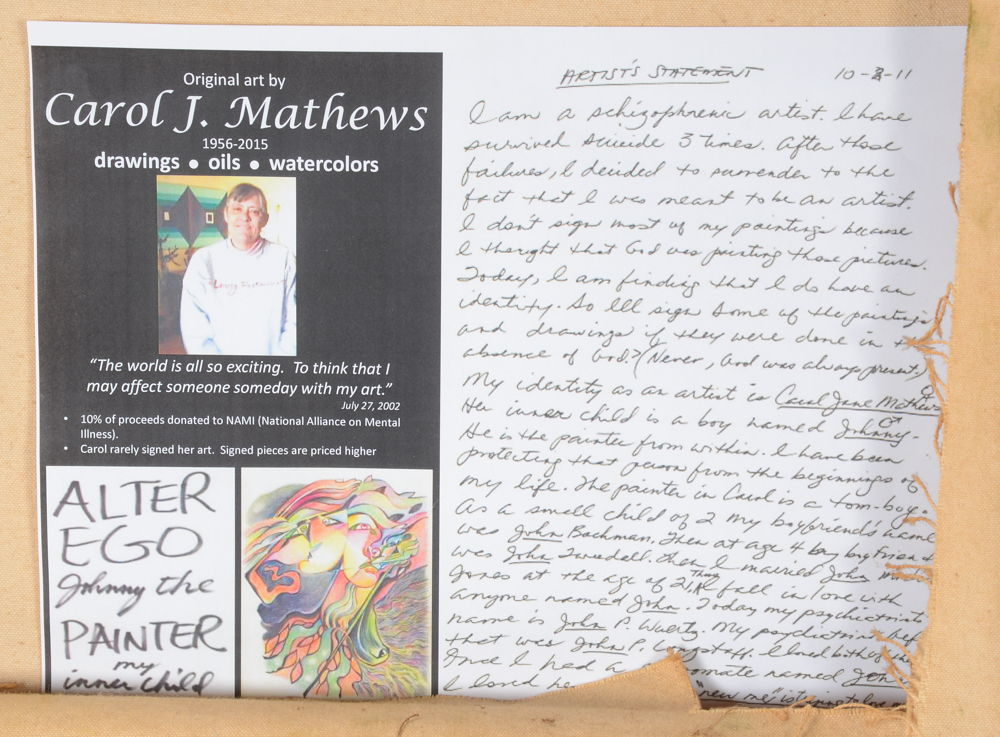 Original art by
Carol J. Mathews
1956-2015
drawings ● oils ● watercolors
“The world is all so exciting. To think that I
may affect someone someday with my art.”
July 27, 2002
• 10% of proceeds donated to NAMI (National Alliance on Mental
Illness).
• Carol rarely signed her art. Signed pieces are priced higher
ALTER
EGO
Johnny the
PAINTER
my
inner child
ARTIST'S STATEMENT 10-3-11
I am a schizophrenic artist. I have
survived suicide 3 times. After those
failures, I decided to surrender to the
fact that I was meant to be an artist.
I don't sign most of my paintings because
I thought that God was painting those pictures.
Today, I am finding that I do have an
identity. So I'll sign some of the paintings
and drawings if they were done in
absence of God? (Never, God was always present)
My identity as an artist is Carol Jane Mathews
Her inner child is a boy named Johnny.
He is the painter from within. I have been
protecting that person from the beginnings of
my life. The painter in Carol is a tom-boy.
As a small child of 2 my boyfriend's name
was John Bachman. Then at age 4 boy friend
was John Twedell. Then I married John
Jones at the age of 21. Then fall in love with
anyone named John. Today my psychiatrists
name is John P. My psychiatrist
that was John P. Longstaff. I loved both
Once I had a named John
I loved he
"new me" is